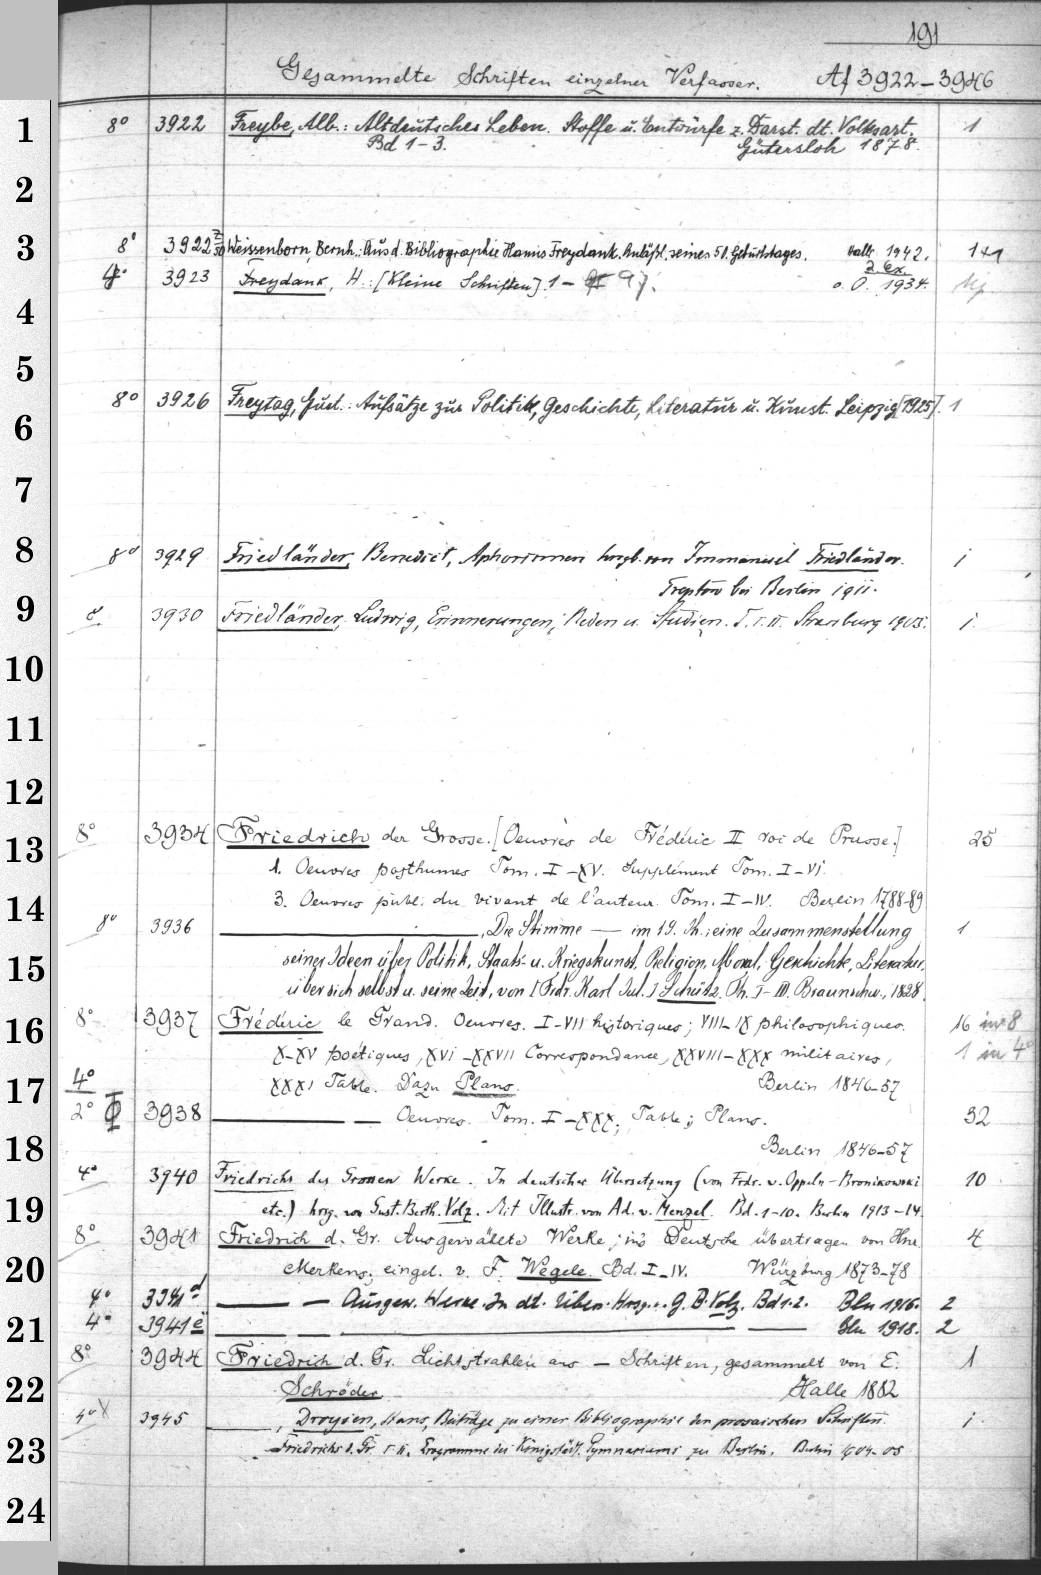 191
Gesammelte Schriften einzelner Verfasser. Af 3922-3946
1 8° 3922 Freybe, Alb.: Altdeutsches Leben. Stoffe u. Entwürfe z. Darst. dt. Volksart. 1
Bd 1-3. Gütersloh 1878.
2
3 8° 3922 Weissenborn Bernh.: Aus d. Bibliographie Hanns Freydank. Anläßl. seines 50. Geburtstages. Halle 1942. 1+1
2 Ex.
4° 3923 Freydank, H.: [Kleine Schriften] 1- 97. o. O. 1934.
4
5
8° 3926 Freytag, Gust.: Aufsätze zur Politik, Geschichte, Literatur u. Kunst. Leipzig [1925]. 1
6
7
8 8° 3929 Friedländer, Benedict, Aphorismen hrgb. von Immanuel Friedländer. 1
Treptow bei Berlin 1911.
9 8° 3930 Friedländer, Ludwig, Erinnerungen, Reden u. Studien. T. I. II. Strassburg 1905. 1
10
11
12
13 8° 3934 Friedrich der Grosse. [Oeuvres de Frédéric II roi de Prusse.] 25
1. Oeuvres posthumes Tom. I-XV. Supplément Tom. I-VI.
14 3. Oeuvres publ. du vivant de l'auteur. Tom. I-IV. Berlin 1788-89
8° 3936 ——, Die Stimme — im 19. Jh.; eine Zusammenstellung 1
15 seiner Ideen über Politik, Staats- u. Kriegskunst, Religion, Moral, Geschichte, Literatur,
über sich selbst u. seine Zeit, von [Frdr. Karl Jul.] Schütz. Th. I-III. Braunschw., 1828.
16 8° 3937 Frédéric le Grand. Oeuvres. I-VII historiques; VIII-IX philosophiques. 16 in 8
X-XV poétiques, XVI-XXVII Correspondance, XXVIII-XXX militaires, 1 in 4°
17 4° XXXI Table. Dazu Plans. Berlin 1846-57
2° 3938 —— — Oeuvres. Tom. I-XXX, Table; Plans. 32
18 Berlin 1846-57
4° 3940 Friedrichs des Grossen Werke. In deutscher Übersetzung (von Frdr. v. Oppeln-Bronikowski 10
19 etc.) hrg. von Gust. Berth. Volz. Mit Illustr. von Ad. v. Menzel. Bd. 1-10. Berlin 1913-14
8° 3941 Friedrich d. Gr. Ausgewählte Werke; ins Deutsche übertragen von Hnr. 4
20 Merkens; eingel. v. F. Wegele. Bd. I-IV. Würzburg 1873-78
4° 3941d —— — Ausgew. Werke. In dt. Übers. Hrsg.: G. B. Volz. Bd 1.2. Bln 1916. 2
21 4° 3941e —— — —— — Bln 1918. 2
8° 3944 Friedrich d. Gr. Lichtstrahlen aus — Schriften, gesammelt von E. 1
22 Schröder. Halle 1882
4° 3945 ——, Droysen, Hans, Beiträge zu einer Bibliographie der prosaischen Schriften 1
23 Friedrichs d. Gr. I. II. Programme des Königstädt. Gymnasiums zu Berlin. Berlin 1904-05
24